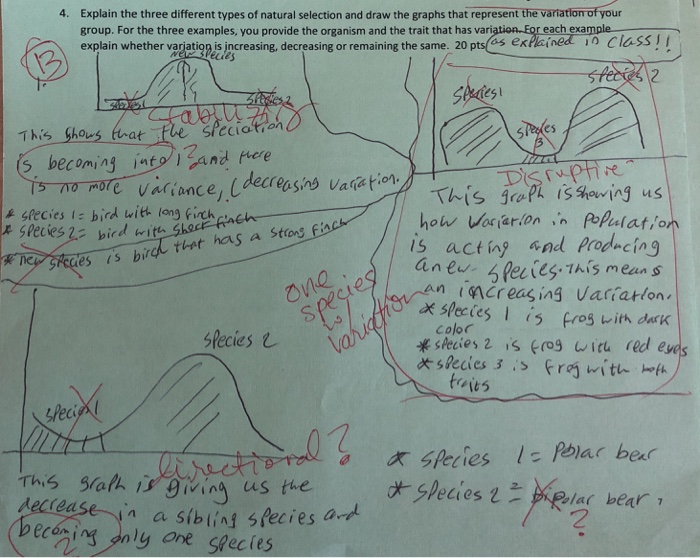 4. Explain the three different types of natural selection and draw the graphs that represent the variation of your
group. For the three examples, you provide the organism and the trait that has variation. For each example
explain whether variation is increasing, decreasing or remaining the same. 20 pts (as explained in class!!
13
new species
species 2
Stabilizing
This shows that the speciation
is becoming into 1 ? and there
is no more variance, (decreasing variation.
* species 1 = bird with long finch
* species 2 = bird with short finch
* new species is bird that has a strong finch
Species 1
species 2
species
3
Disruptive
This graph is showing us
how variation in population
is acting and producing
a new species. This means
an increasing variation.
* species 1 is frog with dark
color
* species 2 is frog with red eyes
* species 3 is frog with both
traits
one
species
variation
species 2
species 1
directional?
This graph is giving us the
decrease in a sibling species and
becoming only one species
?
* species 1 = Polar bear
* species 2 = polar bear
?